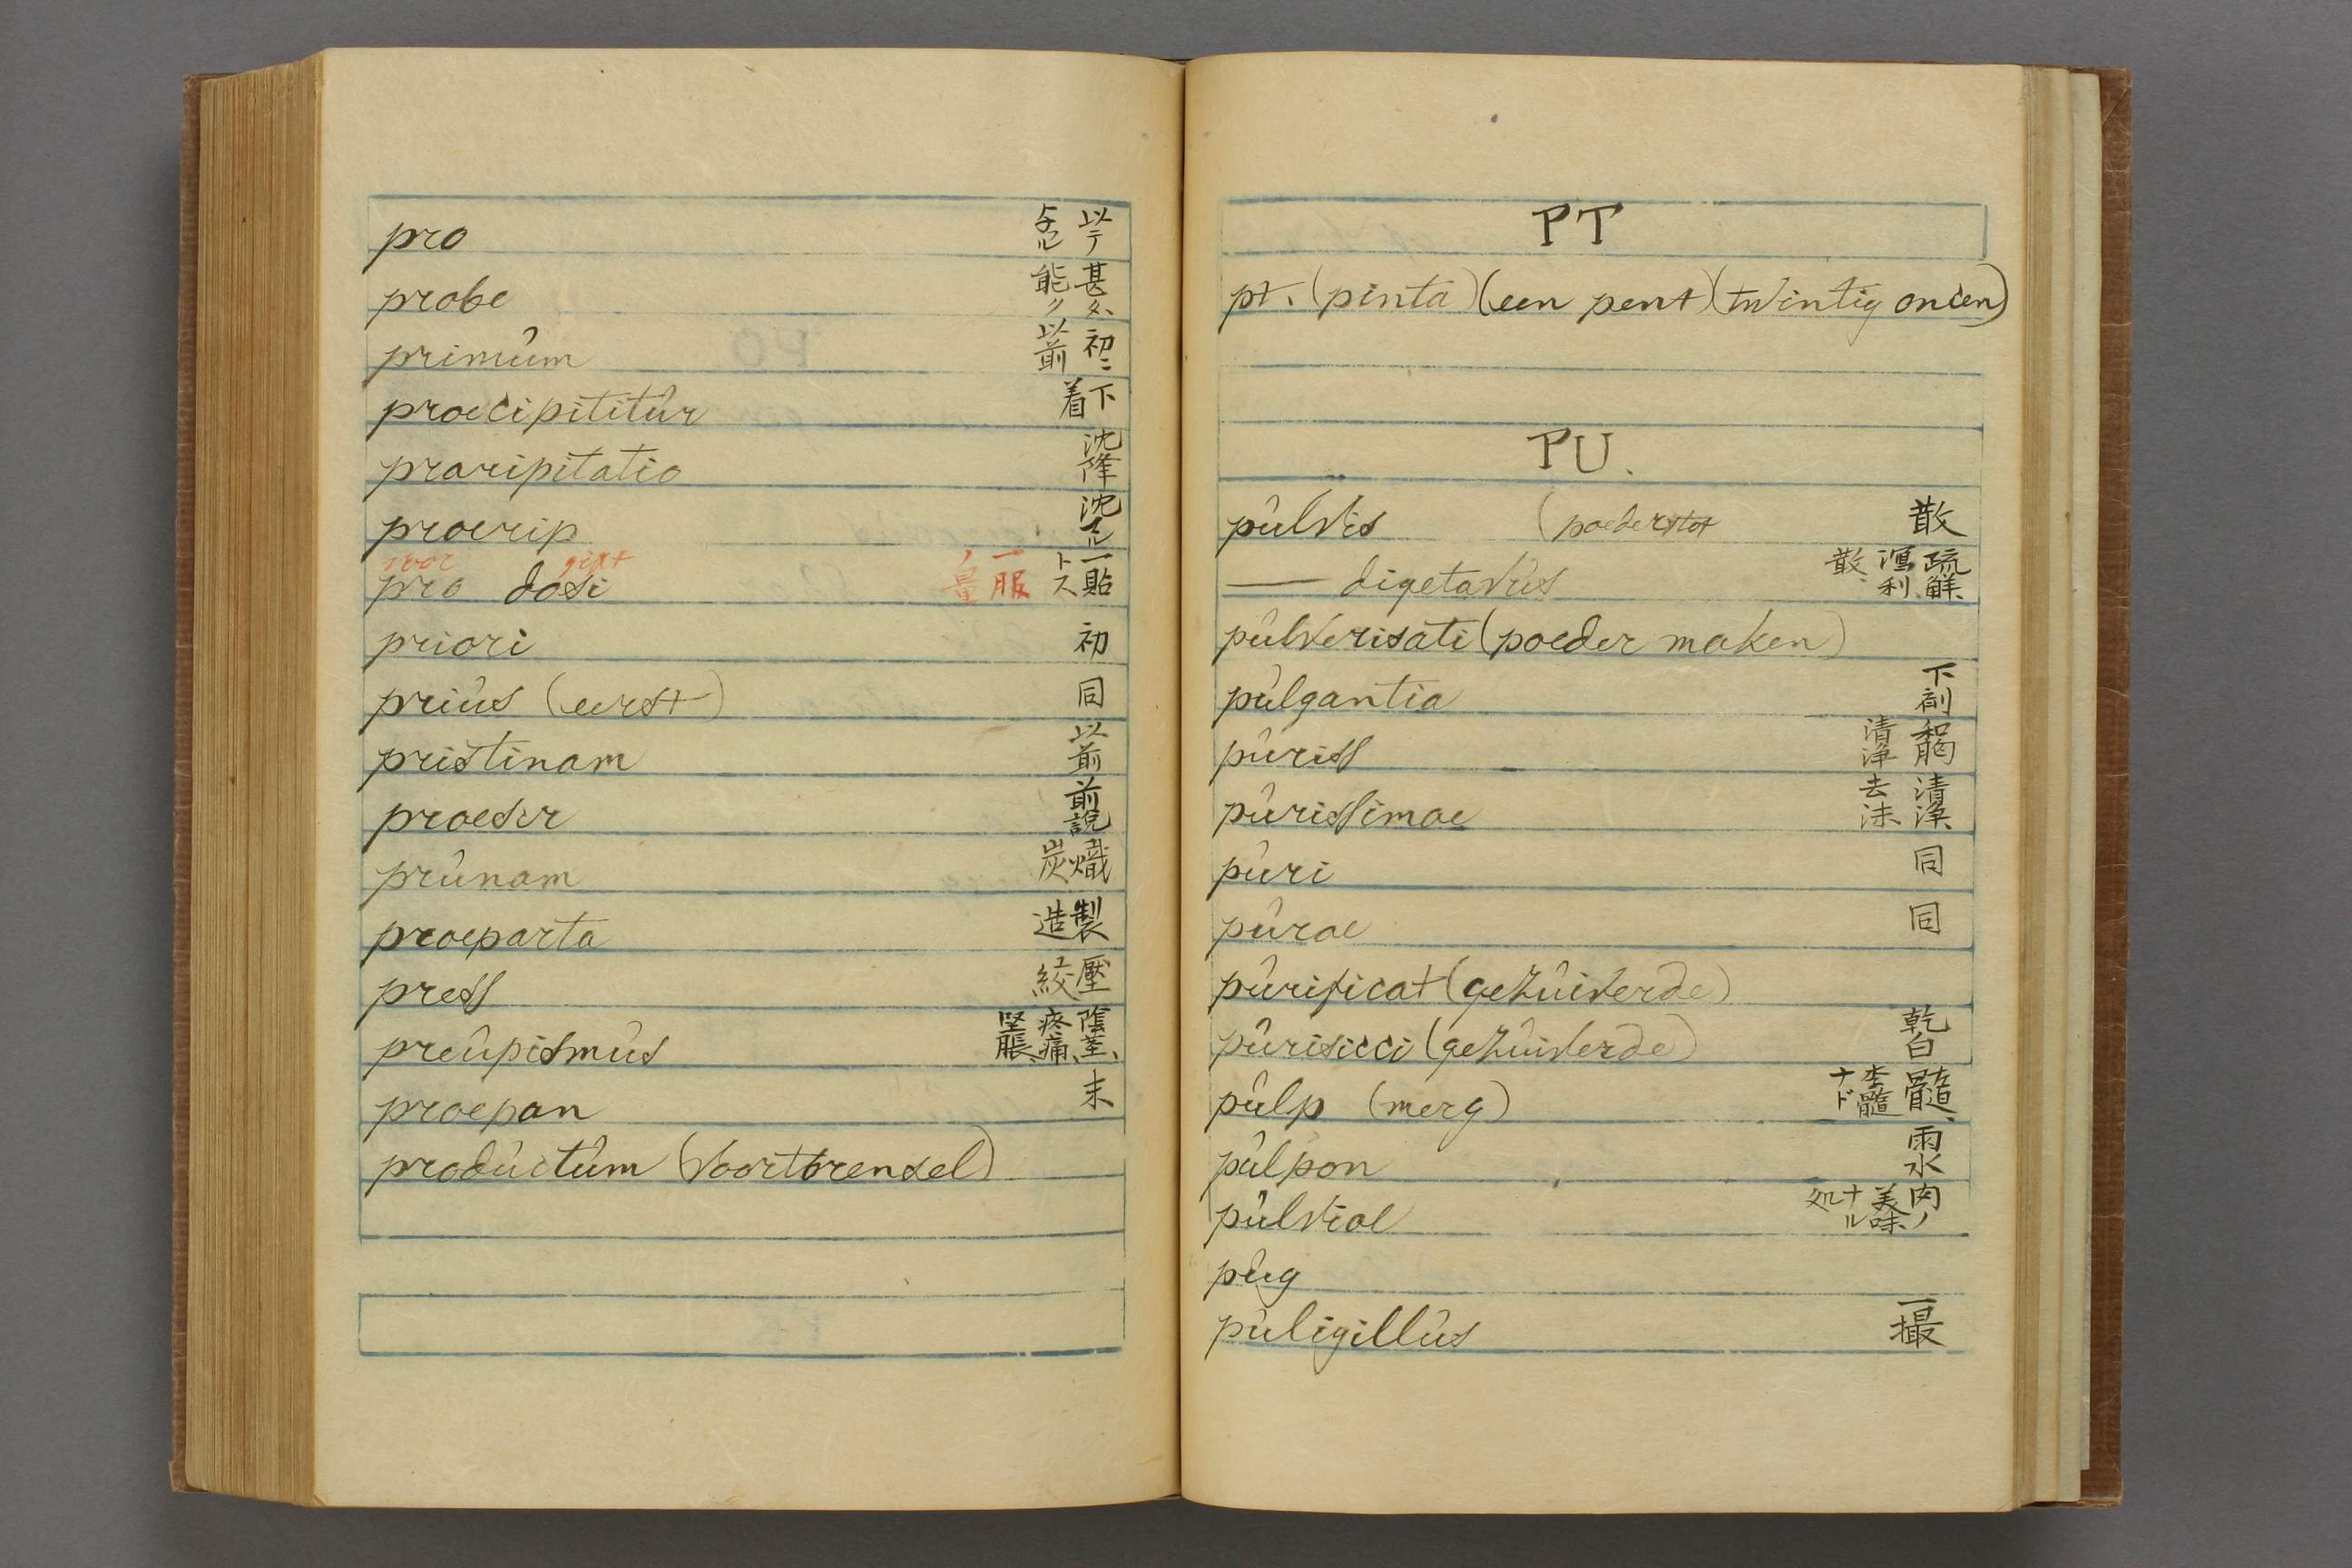 pro 以テ
probe 甚タ、能ク
primûm 初ニ 以前
proecipititûr 下着
praripitatio 沈降
proerip 沈
voor gift
pro dosi 一貼トス 一服ノ量
priori 初
priûs (eerst) 同
pristinam 以前
proescr 前説
prûnam 熾炭
proeparta 製造
press 壓絞
preûpismûs 陰莖、疼痛、堅脹
proepan 末
prodûctûm (voortbrensel)
PT
pt. (pinta) (een pent) (twintig oncen)
PU.
pûlvis (poeder 散
— digetavûs 疏解、溲利、散、
pûlverisati (poeder maken)
pûlgantia 下劑
pûriss 和胸 清浄
pûrissimae 清浄、去沫、
pûri 同
pûrae 同
pûrificat (gezuiverde)
pûrisicci (gezuiverde) 乾白
pûlp (merg) 髓、木髓ナド
pûlpon 雨水
pûlviae 肉ノ美味ナル処
pûg
pûligillûs 一撮